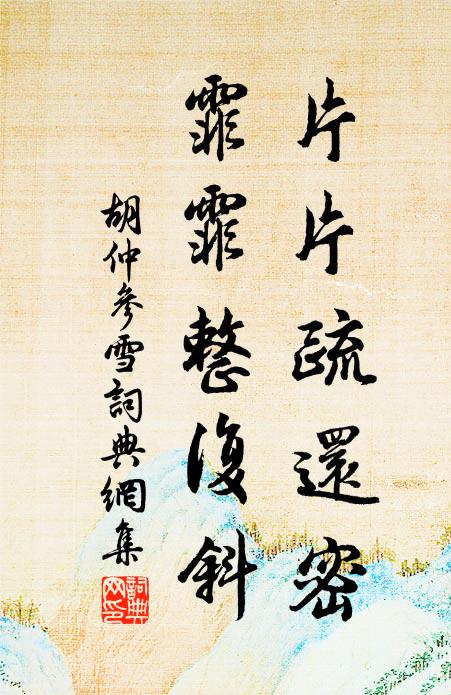 片片疏還密
霏霏整復斜
胡仲參雪詞典網集
詞典